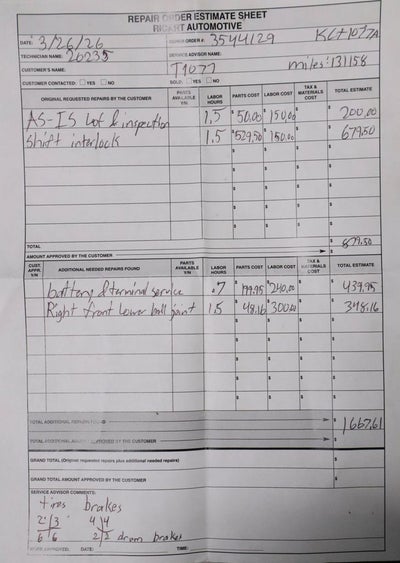 REPAIR ORDER ESTIMATE SHEET
RICART AUTOMOTIVE
DATE: 3/26/26 REPAIR ORDER #: 3544129
TECHNICIAN NAME: 20235 SERVICE ADVISOR NAME:
CUSTOMER'S NAME: T1077 miles: 131158
CUSTOMER CONTACTED: YES NO SOLD: YES NO
ORIGINAL REQUESTED REPAIRS BY THE CUSTOMER PARTS AVAILABLE Y/N LABOR HOURS PARTS COST LABOR COST TAX & MATERIALS COST TOTAL ESTIMATE
AS-IS Lof & inspection 1.5 $50.00 $150.00 $ 200.00
Shift interlock 1.5 $529.50 $150.00 $ 679.50
TOTAL $ 879.50
AMOUNT APPROVED BY THE CUSTOMER $
CUST. APPR. Y/N ADDITIONAL NEEDED REPAIRS FOUND PARTS AVAILABLE Y/N LABOR HOURS PARTS COST LABOR COST TAX & MATERIALS COST TOTAL ESTIMATE
battery & terminal service .7 $199.95 $240.00 $ 439.95
Right front lower ball joint 1.5 $48.16 $300.00 $ 348.16
TOTAL ADDITIONAL REPAIRS FOUND $ 1,667.61
TOTAL ADDITIONAL AMOUNT APPROVED BY THE CUSTOMER $
GRAND TOTAL (Original requested repairs plus additional needed repairs) $
GRAND TOTAL AMOUNT APPROVED BY THE CUSTOMER $
SERVICE ADVISOR COMMENTS:
tires brakes
2 3 4 4
6 6 2 2 drum brakes
WORK APPROVED: DATE: TIME: